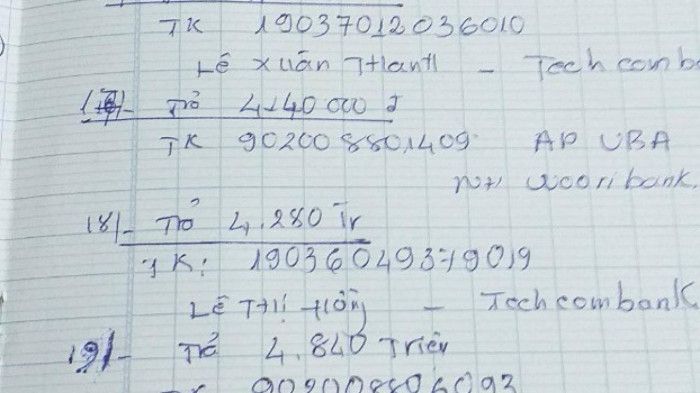 TK 19037012036010
Lê Xuân Thanh - Techcomb
17/- Trả 4.140 000 đ
TK 902008801409 AP UBA
NH Wooribank
18/- Trả 4.280 Tr
TK: 19036049379019
Lê Thị Hồng - Techcombank
19/- Trả 4.840 Triệu
TK 902008806093